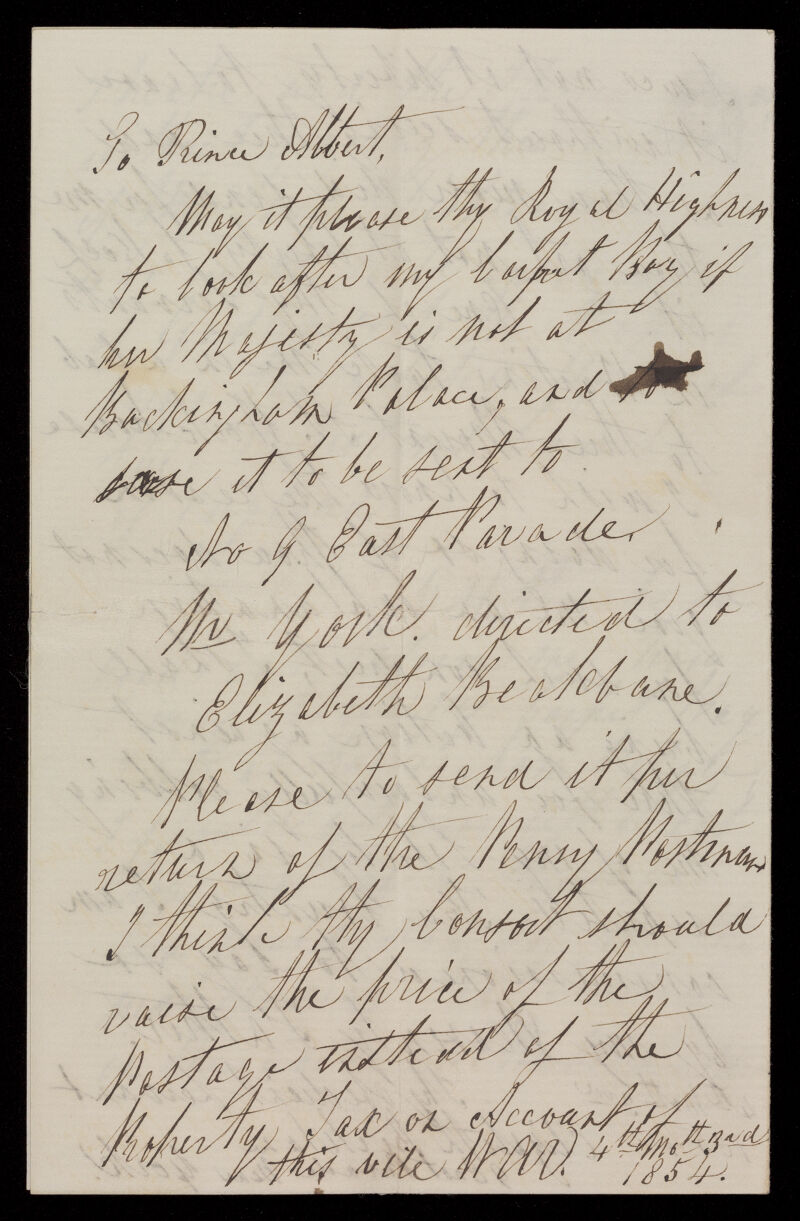 To Prince Albert,
May it please thy Royal Highness
to look after my Carpet Bag if
her Majesty is not at
Buckingham Palace, and to
cause it to be sent to
No 9. East Parade.
Nr York. directed to
Elizabeth Beakbane.
Please to send it per
return of the Penny Postman
I think thy Consort should
raise the price of the
Postage instead of the
Property Tax on Account of
this vile WAR. 4th Moth 3rd
1854.